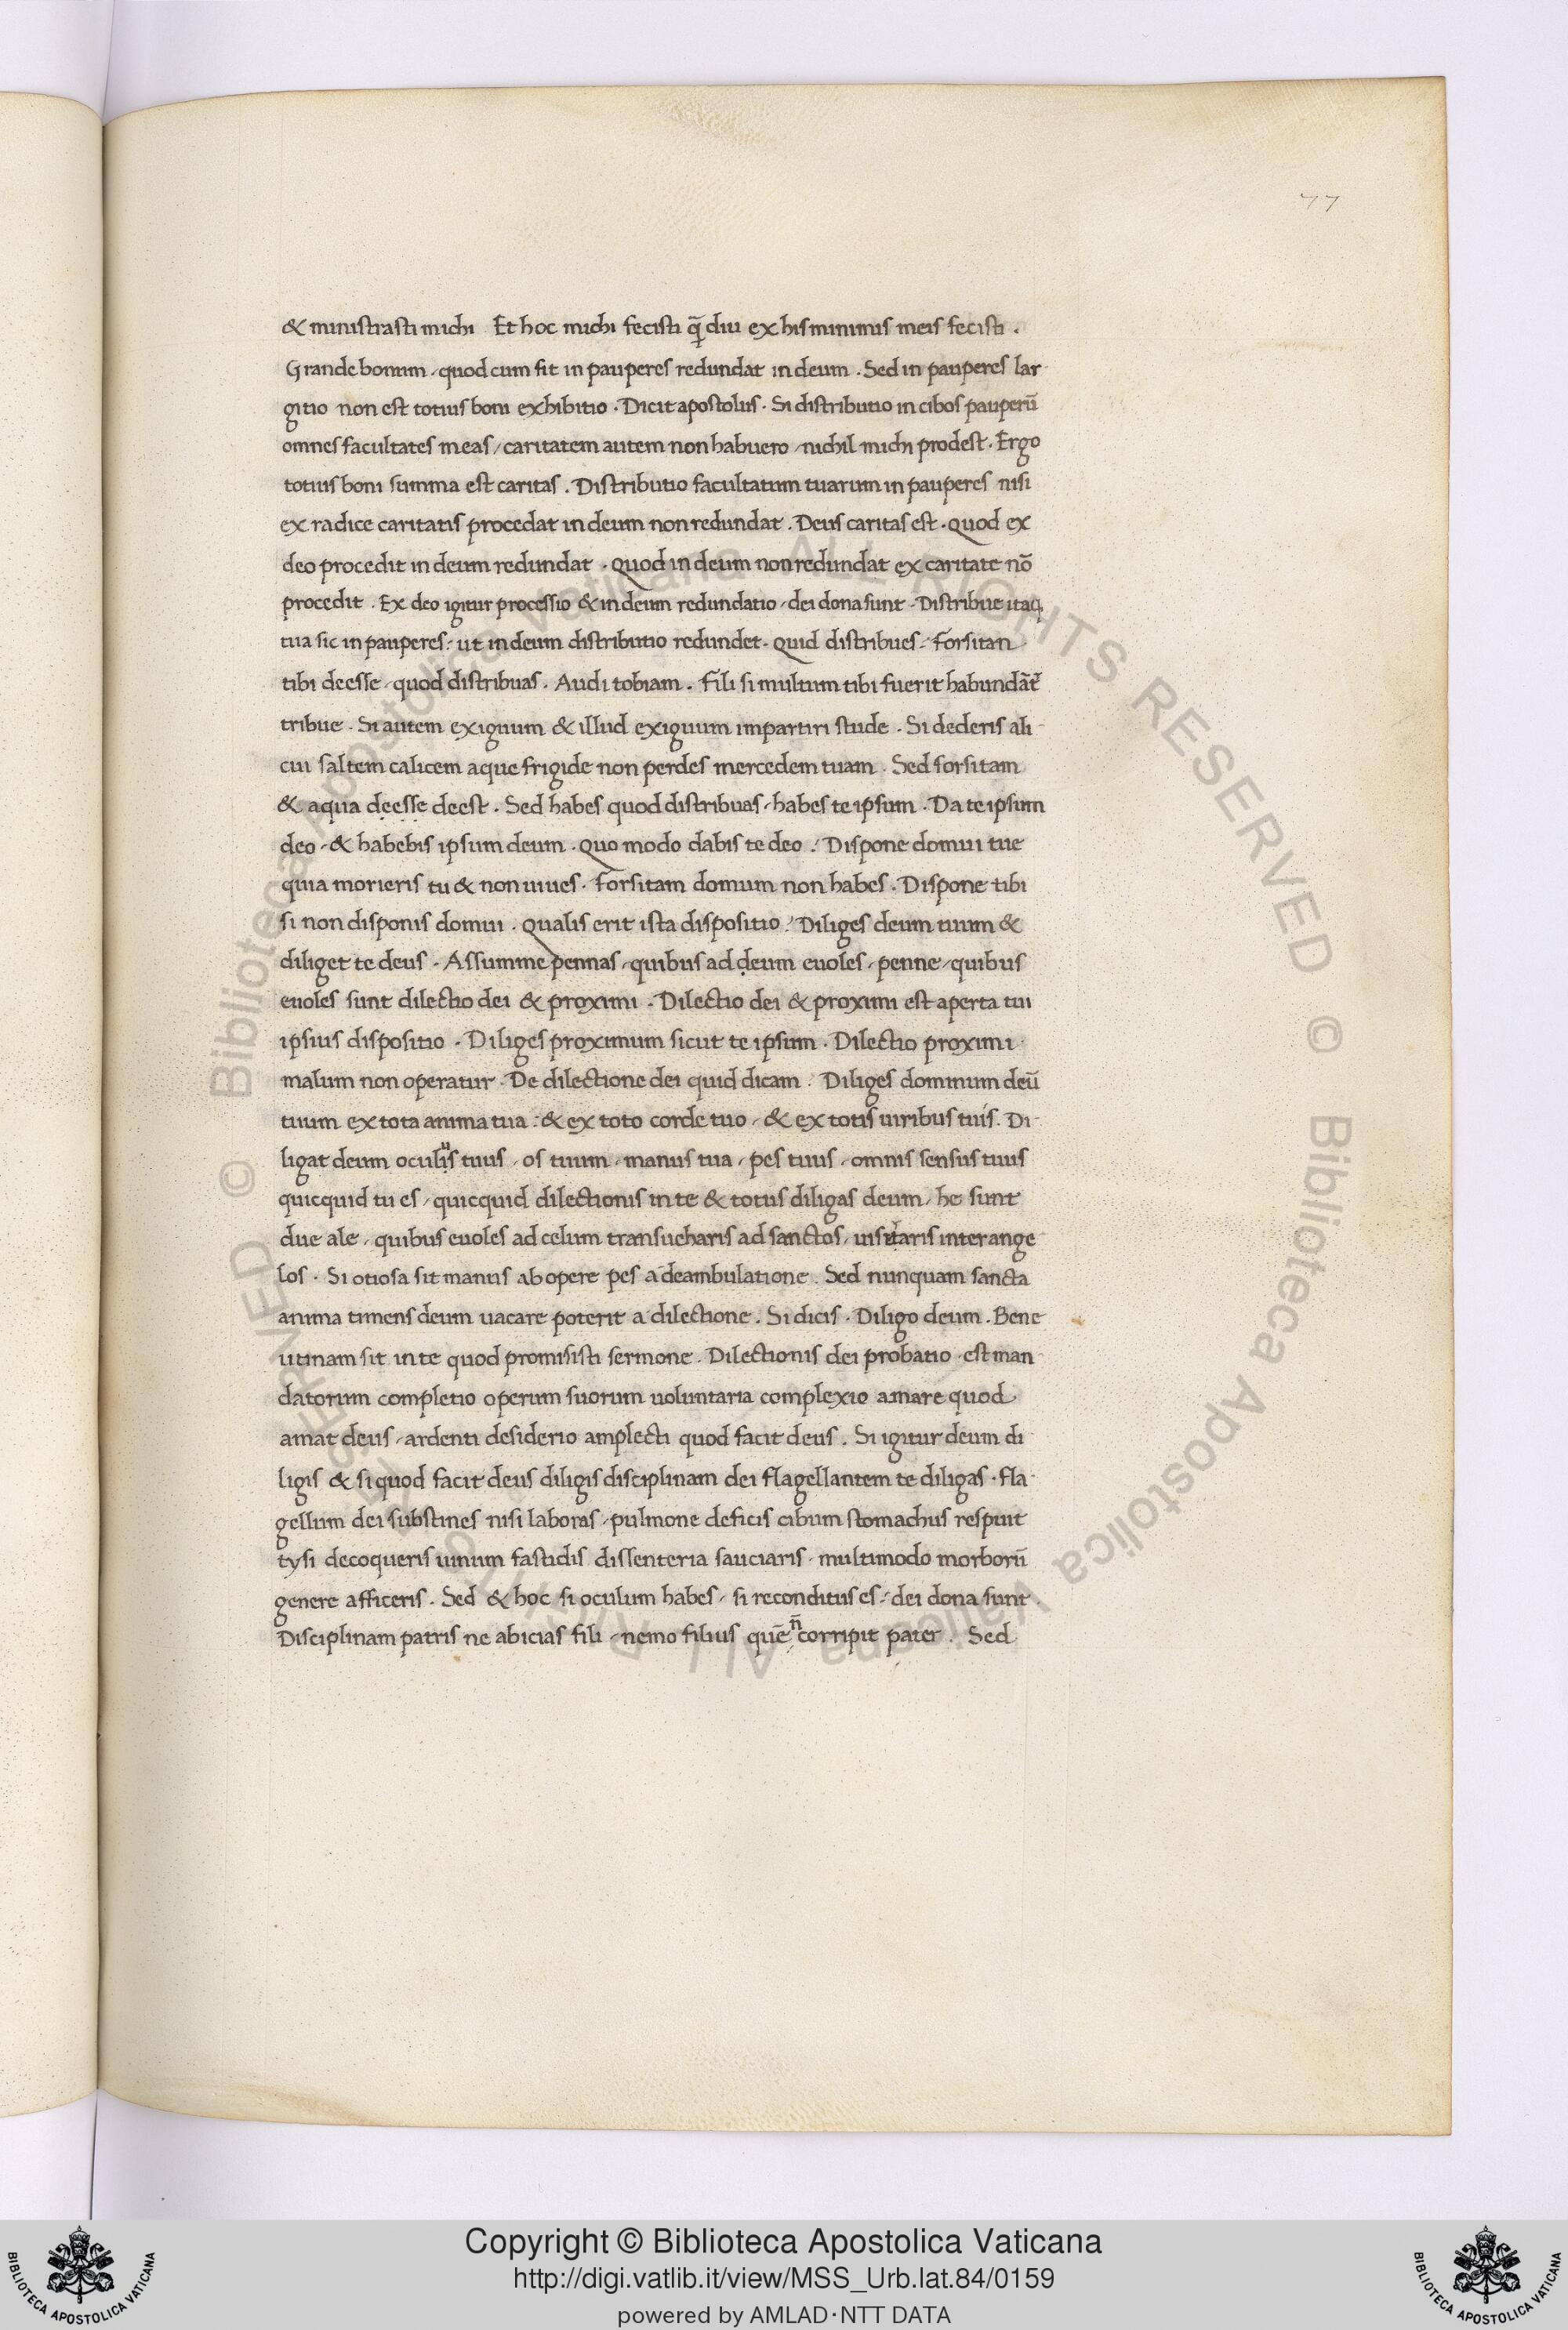 77
& ministrasti michi Et hoc michi fecisti q̄ diu ex his minimis meis fecisti .
Grande bonum , quod cum fit in pauperes redundat in deum . Sed in pauperes lar
gitio non est totius boni exhibitio . Dicit apostolus . Si distributio in cibos pauperū
omnes facultates meas , caritatem autem non habuero , nichil michi prodest . Ergo
totius boni summa est caritas . Distributio facultatum tuarum in pauperes nisi
ex radice caritatis procedat in deum non redundat . Deus caritas est . Quod ex
deo procedit in deum redundat . Quod in deum non redundat ex caritate nō
procedit . Ex deo igitur processio & in deum redundatio , dei dona sunt . Distribue itaq;
tua sic in pauperes : ut in deum distributio redundet . Quid distribues : forsitan
tibi deesse , quod distribuas . Audi tobiam . Fili si multum tibi fuerit habundāt̉
tribue . Si autem exiguum & illud exiguum impartiri stude . Si dederis ali
cui saltem calicem aque frigide non perdes mercedem tuam . Sed forsitam
& aqua deesse deest . Sed habes quod distribuas , habes te ipsum . Da te ipsum
deo , & habebis ipsum deum . Quo modo dabis te deo : Dispone domui tue
quia morieris tu & non uiues . Forsitam domum non habes . Dispone tibi
si non disponis domui . Qualis erit ista dispositio : Diliges deum tuum &
diliget te deus . Assumme pennas , quibus ad deum euoles , penne , quibus
euoles sunt dilectio dei & proximi . Dilectio dei & proximi est aperta tui
ipsius dispositio . Diliges proximum sicut te ipsum . Dilectio proximi
malum non operatur . De dilectione dei quid dicam . Diliges dominum deū
tuum ex tota anima tua : & ex toto corde tuo , & ex totis uiribus tuis . Di
ligat deum oculus tuus , os tuum , manus tua , pes tuus , omnis sensus tuus
quicquid tu es , quicquid dilectionis in te & totus diligas deum , he sunt
due ale , quibus euoles ad celum transueharis ad sanctos , uisitaris inter ange
los . Si otiosa sit manus ab opere pes a deambulatione . Sed nunquam sancta
anima timens deum uacare poterit a dilectione . Si dicis . Diligo deum . Bene
utinam sit in te quod promisisti sermone . Dilectionis dei probatio . est man
datorum completio operum suorum uoluntaria complexio amare quod
amat deus , ardenti desiderio amplecti quod facit deus . Si igitur deum di
ligis & si quod facit deus diligis disciplinam dei flagellantem te diligas . fla
gellum dei substines nisi laboras , pulmone deficis cibum stomachus respuit
tysi decoqueris uinum fastidis dissenteria sauciaris , multimodo morborū
genere afficeris . Sed & hoc si oculum habes , si reconditus es : dei dona sunt .
Disciplinam patris ne abicias fili , nemo filius quē n̄ corripit pater . Sed
© Biblioteca Apostolica Vaticana ALL RIGHTS RESERVED © Biblioteca Apostolica Vaticana ALL RIGHTS RESERVED
BIBLIOTECA APOSTOLICA VATICANA
Copyright © Biblioteca Apostolica Vaticana
http://digi.vatlib.it/view/MSS_Urb.lat.84/0159
powered by AMLAD·NTT DATA
BIBLIOTECA APOSTOLICA VATICANA